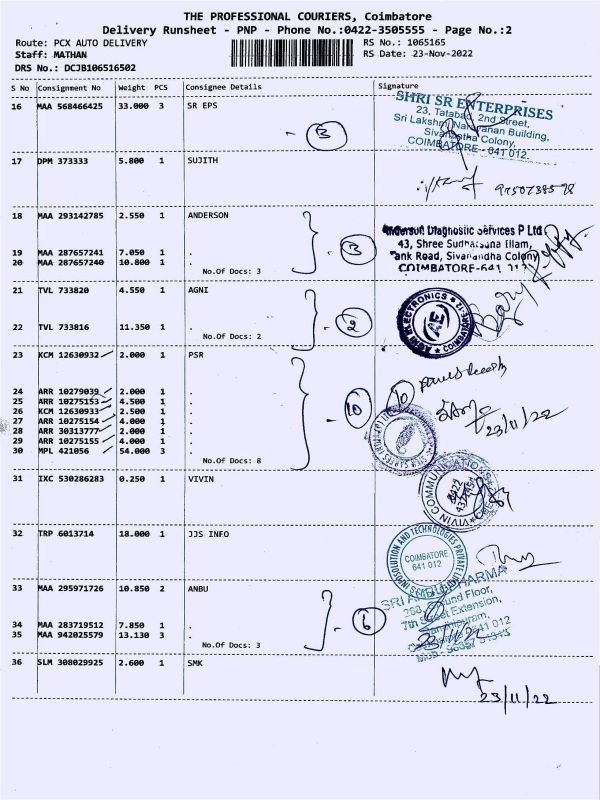 THE PROFESSIONAL COURIERS, Coimbatore
Delivery Runsheet - PNP - Phone No.:0422-3505555 - Page No.:2
Route: PCX AUTO DELIVERY
RS No.: 1065165
Staff: MATHAN
RS Date: 23-Nov-2022
DRS No.: DCJB106516502
S No Consignment No Weight PCS Consignee Details Signature
16 MAA 568466425 33.000 3 SR EPS
- 3
SHRI SR ENTERPRISES
23, Tatabad, 2nd Street,
Sri Lakshmi Narayanan Building,
Sivanantha Colony,
COIMBATORE - 641 012.
17 DPM 373333 5.800 1 SUJITH
18 MAA 293142785 2.550 1 ANDERSON
19 MAA 287657241 7.050 1 .
20 MAA 287657240 10.800 1 .
No.Of Docs: 3
- 3
Anderson Diagnostic Services P Ltd
43, Shree Sudharsana Illam,
Tank Road, Sivanandha Colony
COIMBATORE-641 012
21 TVL 733820 4.550 1 AGNI
22 TVL 733816 11.350 1 .
No.Of Docs: 2
- 2
AGNI ELECTRONICS
AE
COIMBATORE-12
23 KCM 12630932 2.000 1 PSR
24 ARR 10279039 2.000 1 .
25 ARR 10275153 4.500 1 .
26 KCM 12630933 2.500 1 .
27 ARR 10275154 4.000 1 .
28 ARR 30313777 2.000 1 .
29 ARR 10275155 4.000 1 .
30 MPL 421056 54.000 3 .
No.Of Docs: 8
- 10
10
23/11/22
31 IXC 530286283 0.250 1 VIVIN
VIVIN COMMUNICATIONS
32 TRP 6013714 18.000 1 JJS INFO
INFOSOLUTION AND TECHNOLOGIES PRIVATE LIMITED
COIMBATORE
641 012
33 MAA 295971726 10.850 2 ANBU
34 MAA 283719512 7.850 1 .
35 MAA 942025579 13.130 3 .
No.Of Docs: 3
- 6
SRI ANBU PHARMA
Ground Floor,
7th Street Extension,
36 SLM 308029925 2.600 1 SMK
23/11/22